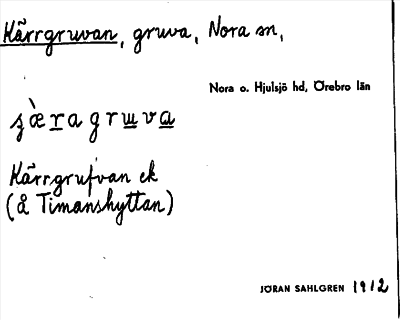 Kärrgruvan, gruva, Nora sn,
Nora o. Hjulsjö hd, Örebro län
ʂæ̀ragruva
Kärrgrufvan ek
(Å Timanshyttan)
JÖRAN SAHLGREN 1912